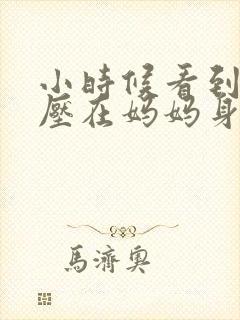 小時候看到
壓在媽媽身
馬濟奧